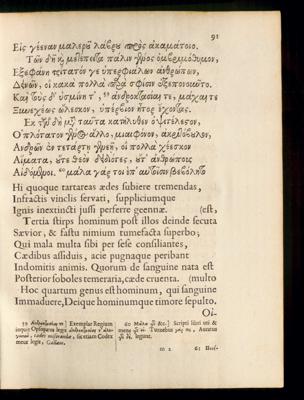 91
Εἰς γέεναν μαλεροῦ λάβρου πυρὸς ἀκαμάτοιο.
Τῶν δὴ καὶ μετέπειτα πάλιν γένος ὀμβριμόθυμον,
Ἐξεφάνη τρίτατον γε ὑπερφιάλων ἀνθρώπων,
Δεινῶν, οἳ κακὰ πολλὰ σφίσιν ἐξεπονοῦντο.
Καὶ τοὺς δ' ὑσμῖναί τ', 59 ἀνδροκτασίαι τε, μάχαι τε
Ἐμμενέως ὤλεσκον, ὑπέρβιον ἦτορ ἔχοντας.
Ἐκ ταῦτα κατῆλυθεν ὀψιτέλεστον,
Ὁπλότατον γένος ἄλλο, μιαιφόνον, ἀκριτόβουλον,
Ἀνδρῶν ἐν τετάρτῃ γενεῇ, οἳ πολλὰ χέεσκον
Αἵματα, οὔτε Θεὸν δεδιότες, οὔτ' ἀνθρώποις
Αἰδόμενοι. 60 μάλα γάρ τοι ἐπ' αὐτοῖσιν βεβόλητο
Hi quoque tartareas ædes subiere tremendas,
Infractis vinclis servati, suppliciumque
Ignis inextincti jussi perferre geennæ. (est,
Tertia stirps hominum post illos deinde secuta
Sævior, & fastu nimium tumefacta superbo;
Qui mala multa sibi per sese consiliantes,
Cædibus assiduis, acie pugnaque peribant
Indomitis animis. Quorum de sanguine nata est
Posterior soboles temeraria, cæde cruenta. (multo
Hoc quartum genus est hominum, qui sanguine
Immaduere, Deique hominumque timore sepulto.
Οἰ-
59 Ἀνδροκτασίαι τε] Exemplar Regium
inquit Opsopœus legit
sic etiam Codex
meus legit, Gallæus.
60 Μάλα γάρ &c.] Scripti libri uti &
mene Turnebus Auratus
legunt.
m 2
61 Βεϐι-